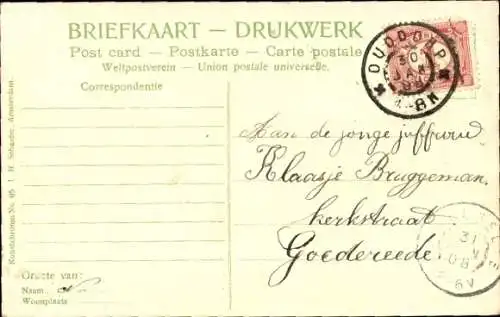 BRIEFKAART — DRUKWERK
Post card — Postkarte — Carte postale
Weltpostverein — Union postale universelle.
Correspondentie
OUDDORP
30
JAN
4-8N
Aan de jonge juffrouw
Klaasje Bruggeman
kerkstraat
Goedereede.
31
08
6V
J. H. Schaefer, Amsterdam.
Groete van:
Naam
Woonplaats